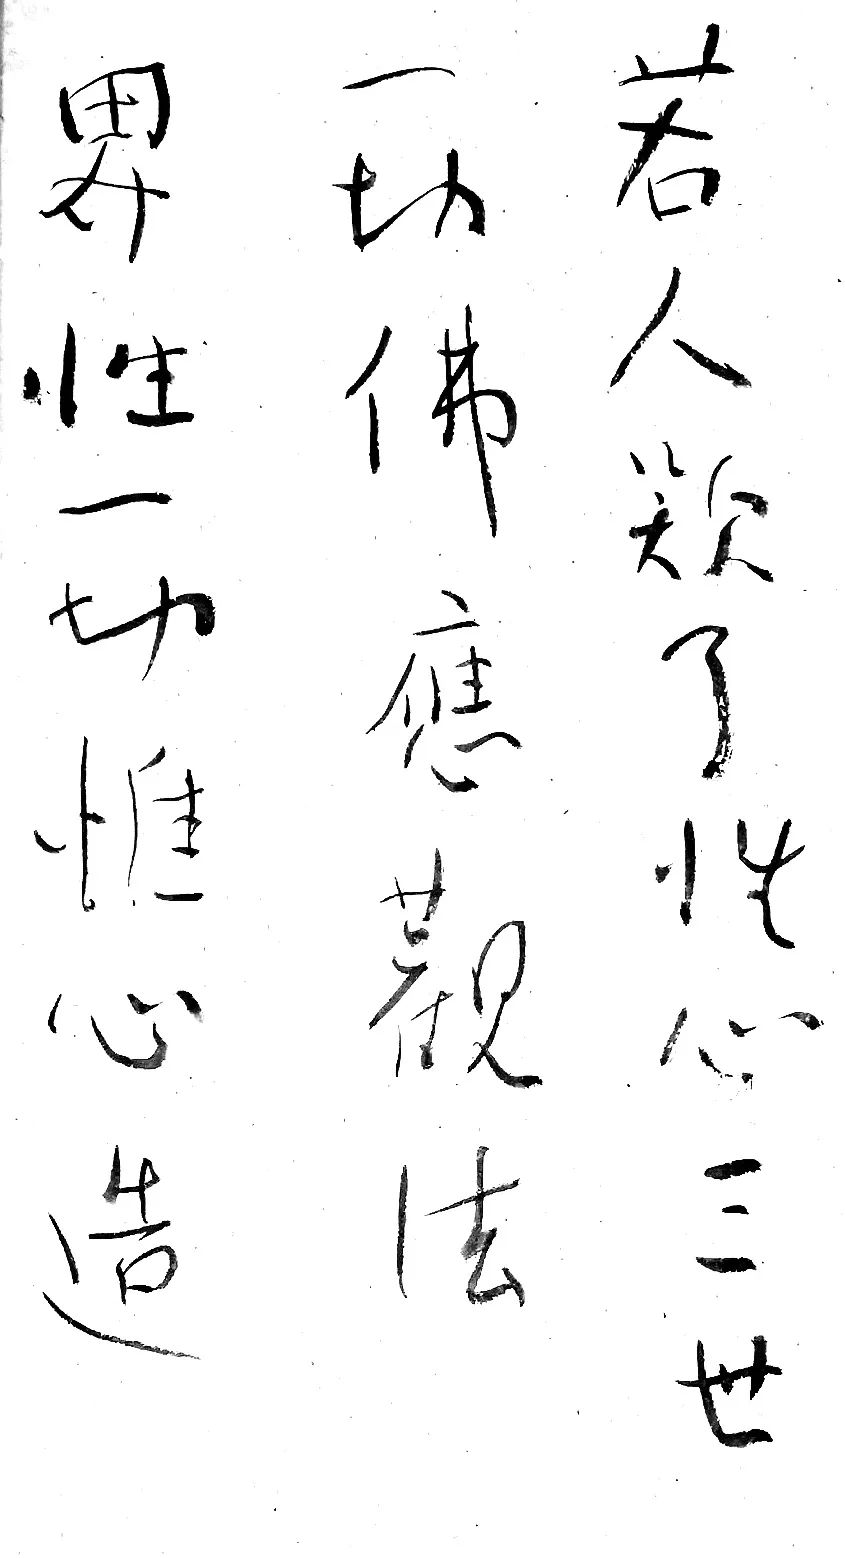 若人欲了性心三世
一切佛應觀法
界性一切惟心造